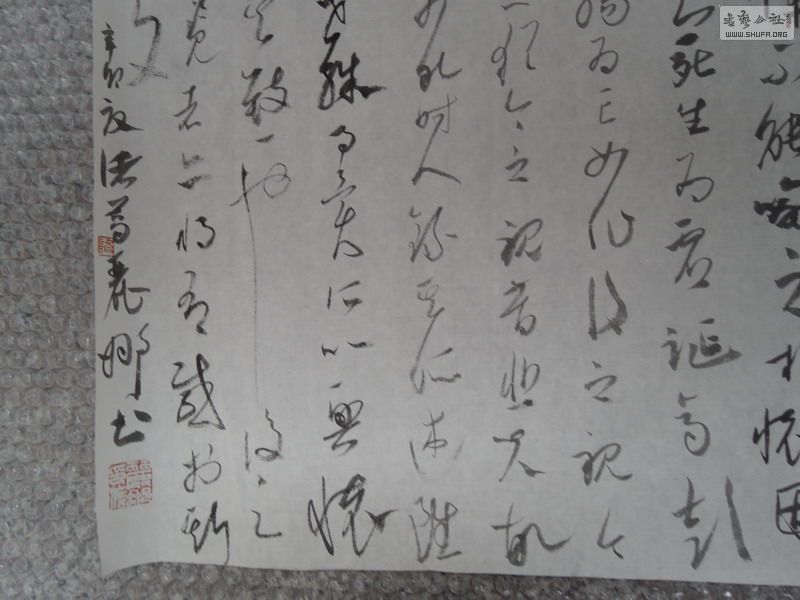 不能喻之於懷固
一死生為虛誕齊彭
殤為妄作後之視今
亦猶今之視昔悲夫故
列敘時人錄其所述雖
世殊事異所以興懷
其致一也後之
覽者亦將有感於斯
文
辛卯夏 麗娜書
書藝公社
WWW.SHUFA.ORG